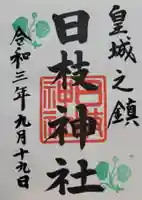 皇城之鎮
日枝神社
令和三年九月十九日